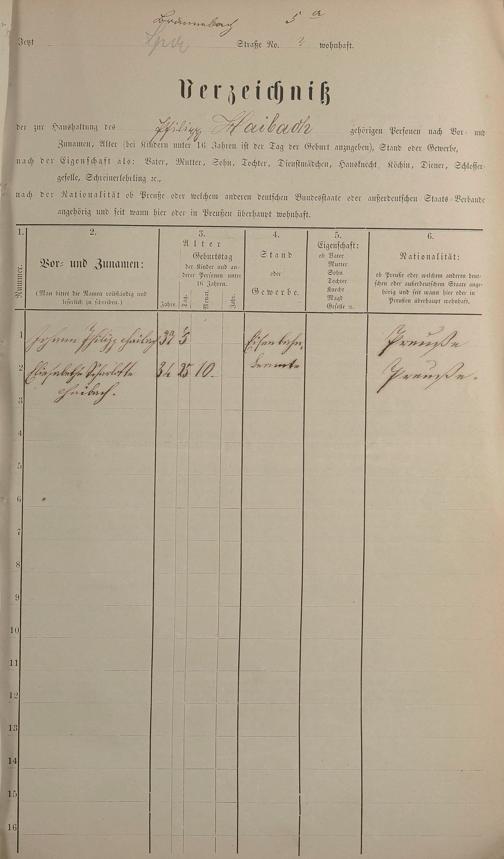 5 a
Jetzt Straße No. wohnhaft.
Verzeichniß
der zur Haushaltung des Philipp Haibach gehörigen Personen nach Vor- und
Zunamen, Alter (bei Kindern unter 16 Jahren ist der Tag der Geburt anzugeben), Stand oder Gewerbe,
nach der Eigenschaft als: Vater, Mutter, Sohn, Tochter, Dienstmädchen, Hausknecht, Köchin, Diener, Schlosser-
geselle, Schreinerlehrling ꝛc.,
nach der Nationalität ob Preuße oder welchem anderen deutschen Bundesstaate oder außerdeutschen Staats-Verbande
angehörig und seit wann hier oder in Preußen überhaupt wohnhaft.
1. 2. 3. 4. 5. 6.
Nummer.
Vor- und Zunamen:
(Man bittet die Namen vollständig und
leserlich zu schreiben.)
Alter
Geburtstag
der Kinder und an-
derer Personen unter
16 Jahren.
Jahre. Tag. Monat. Jahr.
Stand
oder
Gewerbe.
Eigenschaft:
ob Vater
Mutter
Sohn
Tochter
Knecht
Magd
Geselle ꝛc.
Nationalität:
ob Preuße oder welchem anderen deut-
schen oder außerdeutschen Staate ange-
hörig und seit wann hier oder in
Preußen überhaupt wohnhaft.
1 Johann Philipp Haibach 33 Eisenbahn Preuße
2 Charlotte 34 25 10. Beamte Preuße.
Haibach.
3
4
5
6
7
8
9
10
11
12
13
14
15
16